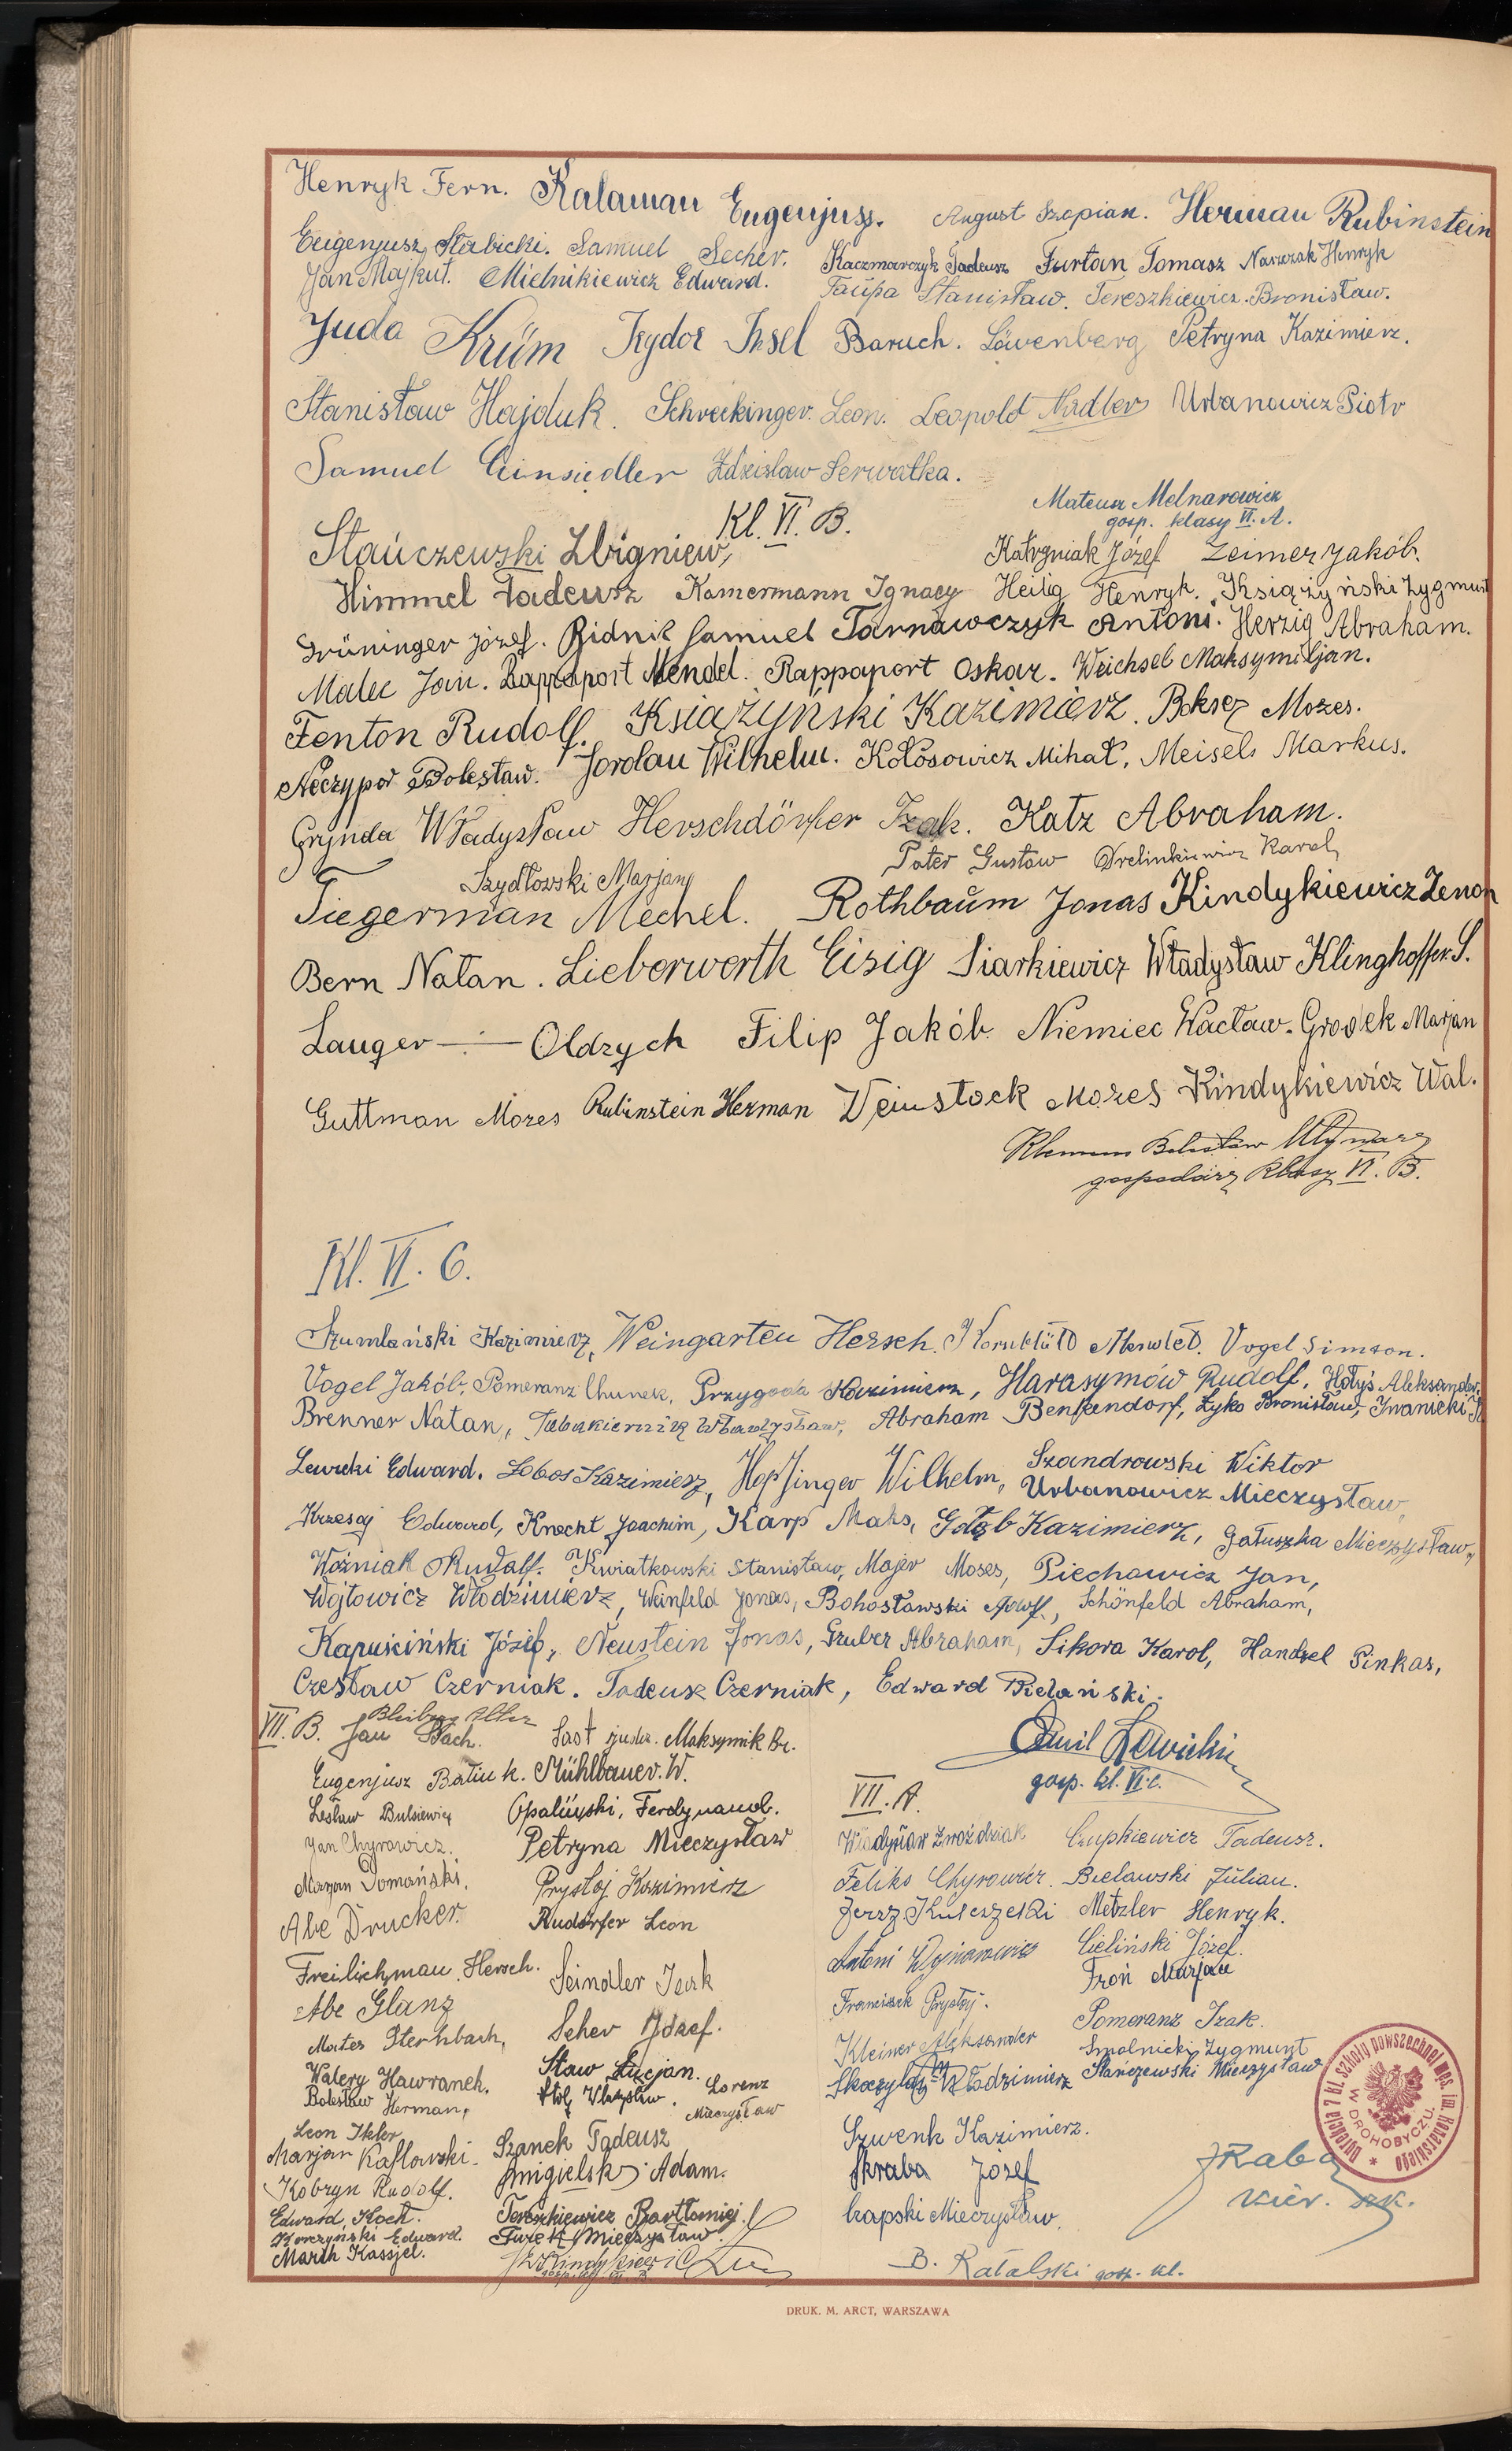 Henryk Fern. Kalaman Eugenjusz. August Szopian. Herman Rubinstein
Eugenjusz Słabicki. Samuel Secher. Kaczmarczyk Tadeusz Furtan Tomasz Naszak Henryk
Jan Majkut. Mielnikiewicz Edward. Taupa Stanisław. Tereszkiewicz Bronisław.
Juda Krüm Izydor Insel Baruch. Löwenberg Petryna Kazimierz.
Stanisław Hajduk. Schreckinger Leon. Leopold Nadler Urbanowicz Piotr
Samuel Einsiedler Zdzisław Serwatka.
Mateusz Melnarowicz
gosp. klasy VI. A.
Kl. VI. B.
Stańczewski Zbigniew, Katryniak Józef Zeimer Jakób.
Himmel Tadeusz Kamermann Ignacy Heilig Henryk. Książyński Zygmunt
Grüninger Józef. Bidnik Samuel Tarnawczyk Antoni. Herzig Abraham.
Malec Jan. Rappaport Mendel. Rappaport Oskar. Weichsel Maksymiljan.
Fenton Rudolf. Książyński Kazimierz. Bokser Mozes.
Neczypor Bolesław. Jordan Wilhelm. Kołosowicz Mihał, Meisels Markus.
Grynda Władysław Herschdörfer Izak. Katz Abraham.
Szydłowski Marjan Pater Gustaw Drelinkiewicz Karol,
Tiegerman Mechel. Rothbaum Jonas Kindykiewicz Zenon
Bern Natan. Lieberwerth Eisig Siarkiewicz Władysław Klinghoffer S.
Langer Oldrych Filip Jakób. Niemiec Wacław. Grodek Marjan
Guttman Mozes Rubinstein Herman Weinstock Mozes Kindykiewicz Wal.
Klemens Bolesław Młynarz
gospodarz klasy VI. B.
Kl. VI. C.
Szumlański Kazimierz, Weingarten Hersch. Kornblüth Vogel Simson.
Vogel Jakób, Pomeranz Chunek, Przygoda Kazimierz, Harasymów Rudolf, Hołyś Aleksander,
Brenner Natan, Władysław, Abraham Benkendorf, Łyko Bronisław, Iwanicki
Lewicki Edward. Łobos Kazimierz, Hopfinger Wilhelm, Szandrowski Wiktor
Urbanowicz Mieczysław,
Krzesaj Edward, Knecht Joachim, Karp Maks, Gołąb Kazimierz, Gałuszka Mieczysław,
Woźniak Rudolf. Kwiatkowski Stanisław, Majer Moses, Piechowicz Jan,
Wojtowicz Włodzimierz, Weinfeld Jonas, Bohosławski Adolf, Schönfeld Abraham,
Kapuściński Józef, Neustein Jonas, Gruber Abraham, Sikora Karol, Handzel Pinkas,
Czesław Czerniak. Tadeusz Czerniak, Edward Pielański.
Emil Lewicki
gosp. kl. VI. c.
VII. B. Bleiberg Alter
Jan Bach. Maksymik Br.
Eugenjusz Batiuk. Mühlbauer. W.
Lesław Bulsiewicz Opaliński, Ferdynand.
Jan Chyrowicz. Petryna Mieczysław
Marjan Domański. Prystoj Kazimierz
Abe Drucker. Rudorfer Leon
Freilichman. Hersch. Seindler Izak
Abe Glanz
Mates Sternbach, Seher Józef.
Walery Hawranek. Staw Łucjan.
Bolesław Herman, Stolz Władysław. Lorenz Mieczysław
Leon Ikler
Marjan Kaflowski. Szanek Tadeusz
Kobryn Rudolf. Śmigielski Adam.
Edward Koch. Tereszkiewicz Bartłomiej.
Korczyński Edward. Turek Mieczysław.
March Kassjel. Kindykiewicz
VII. A.
Władysław Zwoździak Czupkiewicz Tadeusz.
Feliks Chyrowicz. Bielawski Julian.
Jerzy Kuleszecki Metzler Henryk.
Antoni Wojnarowicz Cieliński Józef.
Froń Marjan
Franciszek Prystoj. Pomeranz Izak.
Kleiner Aleksander Smolnicki Zygmunt
Skoczylas Władzimierz Stańczewski Mieczysław
Szwenk Kazimierz.
Skraba Józef
Czapski Mieczysław,
B. Ratalski gosp. kl.
JRaba
kier. szk.
Dyrekcja 7 kl. szkoły powszechnej męs. im. Konarskiego
W DROHOBYCZU.
DRUK. M. ARCT, WARSZAWA